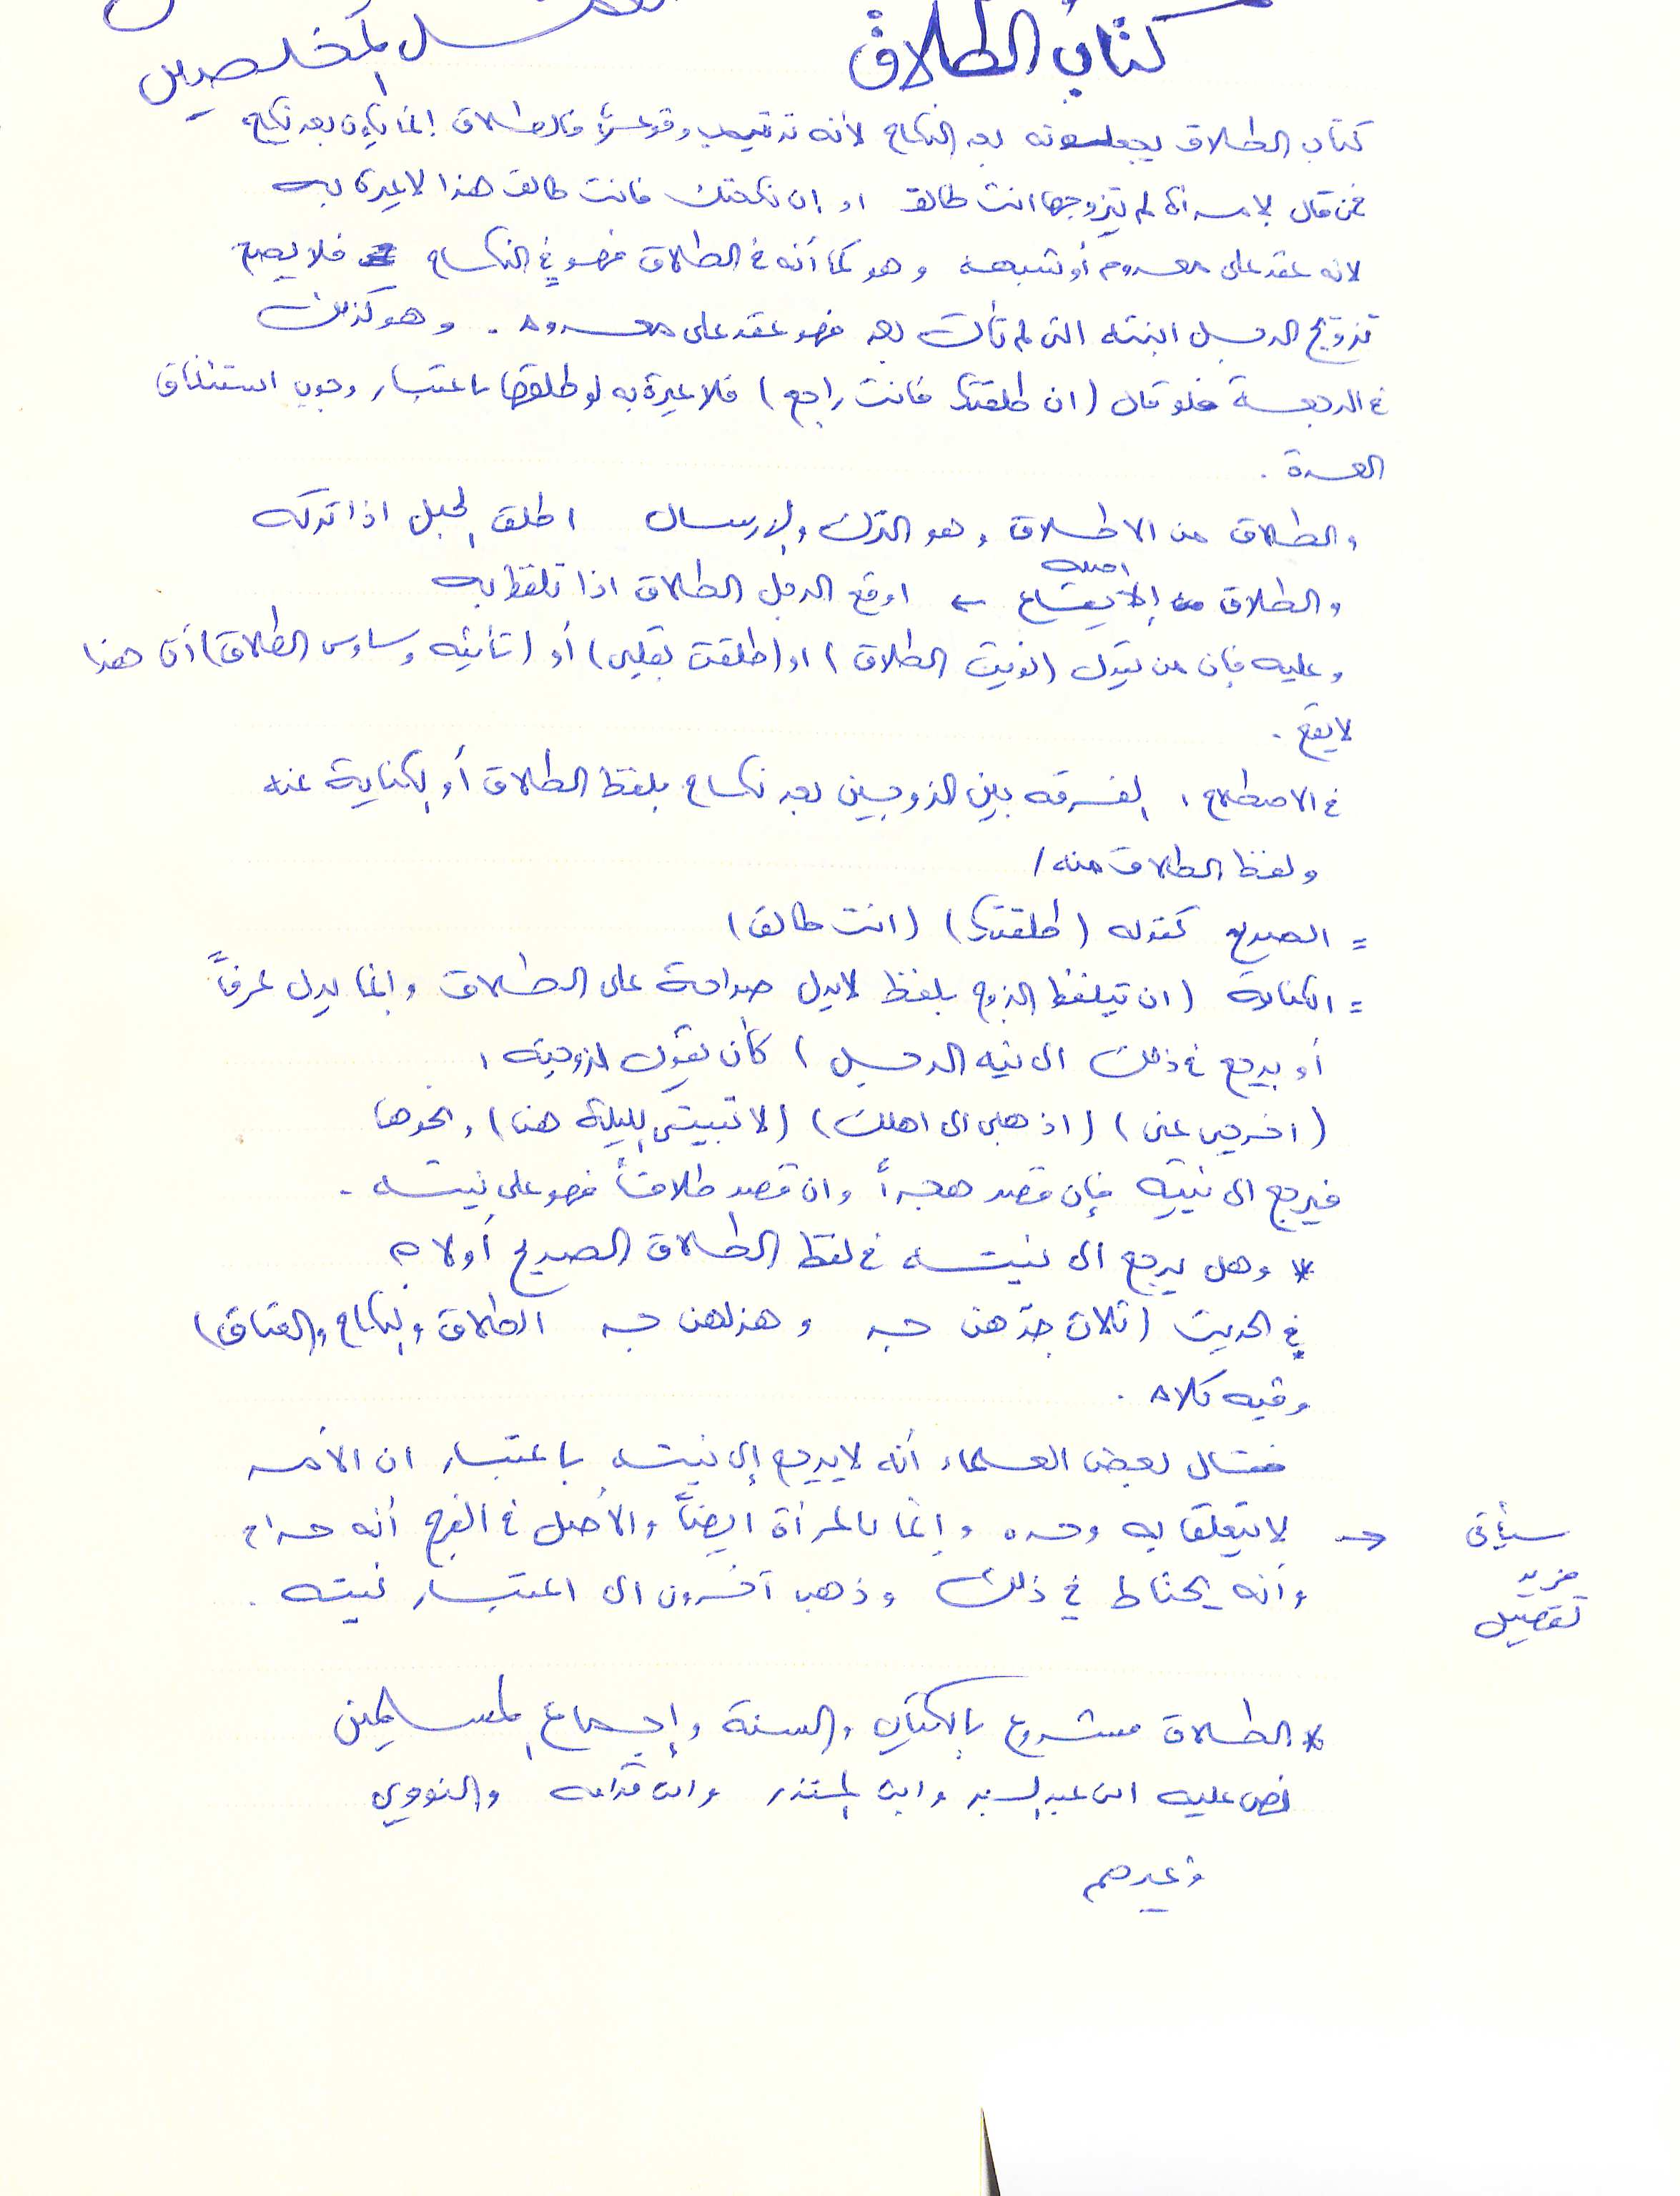 كتاب الطلاق
سل المخلصين
كتاب الطلاق يجعلونه بعد النكاح لأنه ترتيب وقوعي فالطلاق إنما يكون بعد نكاح
فمن قال لامرأة لم يتزوجها انت طالق او إن نكحتك فانت طالق هذا لا عبرة به
لانه عقد على معدوم أو شبهه وهو كما أنه في الطلاق فهو في النكاح فلا يصح
تزويج الرجل ابنته التي لم تأت بعد فهو عقد على معدوم . وهو كذلك
في الرجعة فلو قال (ان طلقتك فانت راجع) فلا عبرة به لو طلقها باعتبار وجوب استئناف
العدة .
والطلاق من الاطلاق وهو الترك والإرسال اطلق الحبل اذا تركه
والطلاق اصله الإيقاع ← اوقع الرجل الطلاق اذا تلفظ به
وعليه فإن من يقول (نويت الطلاق) او (طلقت بقلبي) أو (تأتيه وساوس الطلاق) أن هذا
لا يقع .
في الاصطلاح : الفرقه بين الزوجين بعد نكاح بلفظ الطلاق أو الكناية عنه
ولفظ الطلاق منه /
= الصريح كقوله (طلقتك) (انت طالق)
= الكناية (ان يتلفظ الزوج بلفظ لا يدل صراحة على الطلاق وإنما يدل عرفاً
أو يرجع في ذلك الى نيه الرجل) كأن يقول لزوجته :
(اخرجي عني) (اذهبي الى اهلك) (لا تبيتي الليلة هنا) ونحوها
فيرجع الى نيته فإن قصد هجراً وان قصد طلاقاً فهو على نيته .
* وهل يرجع الى نيته في لفظ الطلاق الصريح أو لا ؟
في الحديث (ثلاث جدّهن جد وهزلهن جد الطلاق والنكاح والعتاق)
وفيه كلام .
فقال بعض العلماء أنه لا يرجع إلى نيته باعتبار ان الأمر
لا يتعلق به وحده وإنما بالمرأة ايضاً والأصل في الفرج أنه حرام → سيأتي
وأنه يحتاط في ذلك وذهب آخرون الى اعتبار نيته . مزيد
تفصيل
* الطلاق مشروع بالكتاب والسنة وإجماع المسلمين
نص عليه ابن عبد البر وابن المنذر وابن قدامه والنووي
وغيرهم